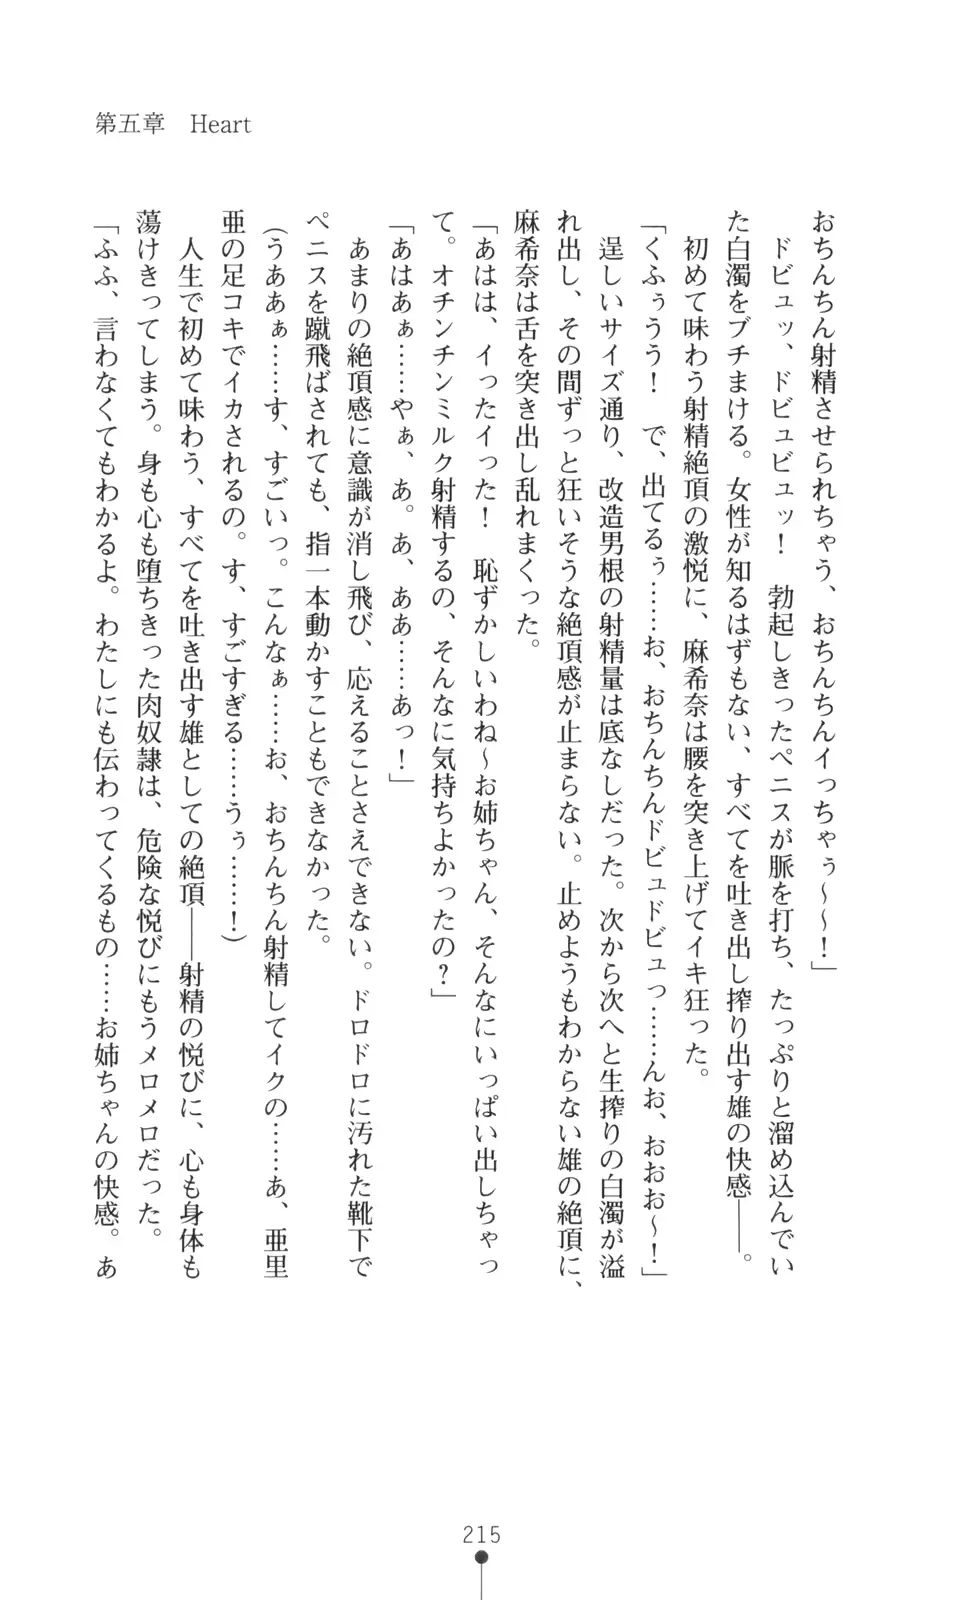 第五章　Heart
おちんちん射精させられちゃう、おちんちんイっちゃぅ〜〜！」
　ドビュッ、ドビュビュッ！　勃起しきったペニスが脈を打ち、たっぷりと溜め込んでい
た白濁をブチまける。女性が知るはずもない、すべてを吐き出し搾り出す雄の快感――。
　初めて味わう射精絶頂の激悦に、麻希奈は腰を突き上げてイキ狂った。
「くふぅうう！　で、出てるぅ……お、おちんちんドビュドビュっ……んお、おおお〜！」
　逞しいサイズ通り、改造男根の射精量は底なしだった。次から次へと生搾りの白濁が溢
れ出し、その間ずっと狂いそうな絶頂感が止まらない。止めようもわからない雄の絶頂に、
麻希奈は舌を突き出し乱れまくった。
「あはは、イったイった！　恥ずかしいわね〜お姉ちゃん、そんなにいっぱい出しちゃっ
て。オチンチンミルク射精するの、そんなに気持ちよかったの？」
「あはあぁ……やぁ、あ。あ、ああ……あっ！」
　あまりの絶頂感に意識が消し飛び、応えることさえできない。ドロドロに汚れた靴下で
ペニスを蹴飛ばされても、指一本動かすこともできなかった。
（うああぁ……す、すごいっ。こんなぁ……お、おちんちん射精してイクの……あ、亜里
亜の足コキでイカされるの。す、すごすぎる……うぅ……！）
　人生で初めて味わう、すべてを吐き出す雄としての絶頂――射精の悦びに、心も身体も
蕩けきってしまう。身も心も堕ちきった肉奴隷は、危険な悦びにもうメロメロだった。
「ふふ、言わなくてもわかるよ。わたしにも伝わってくるもの……お姉ちゃんの快感。あ
215